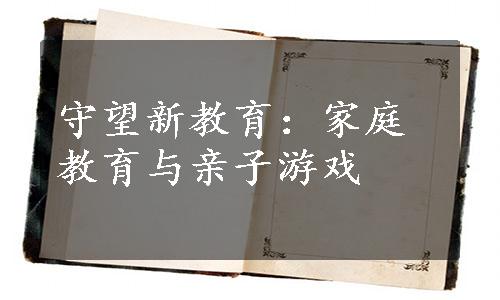 守望新教育：家庭
教育与亲子游戏